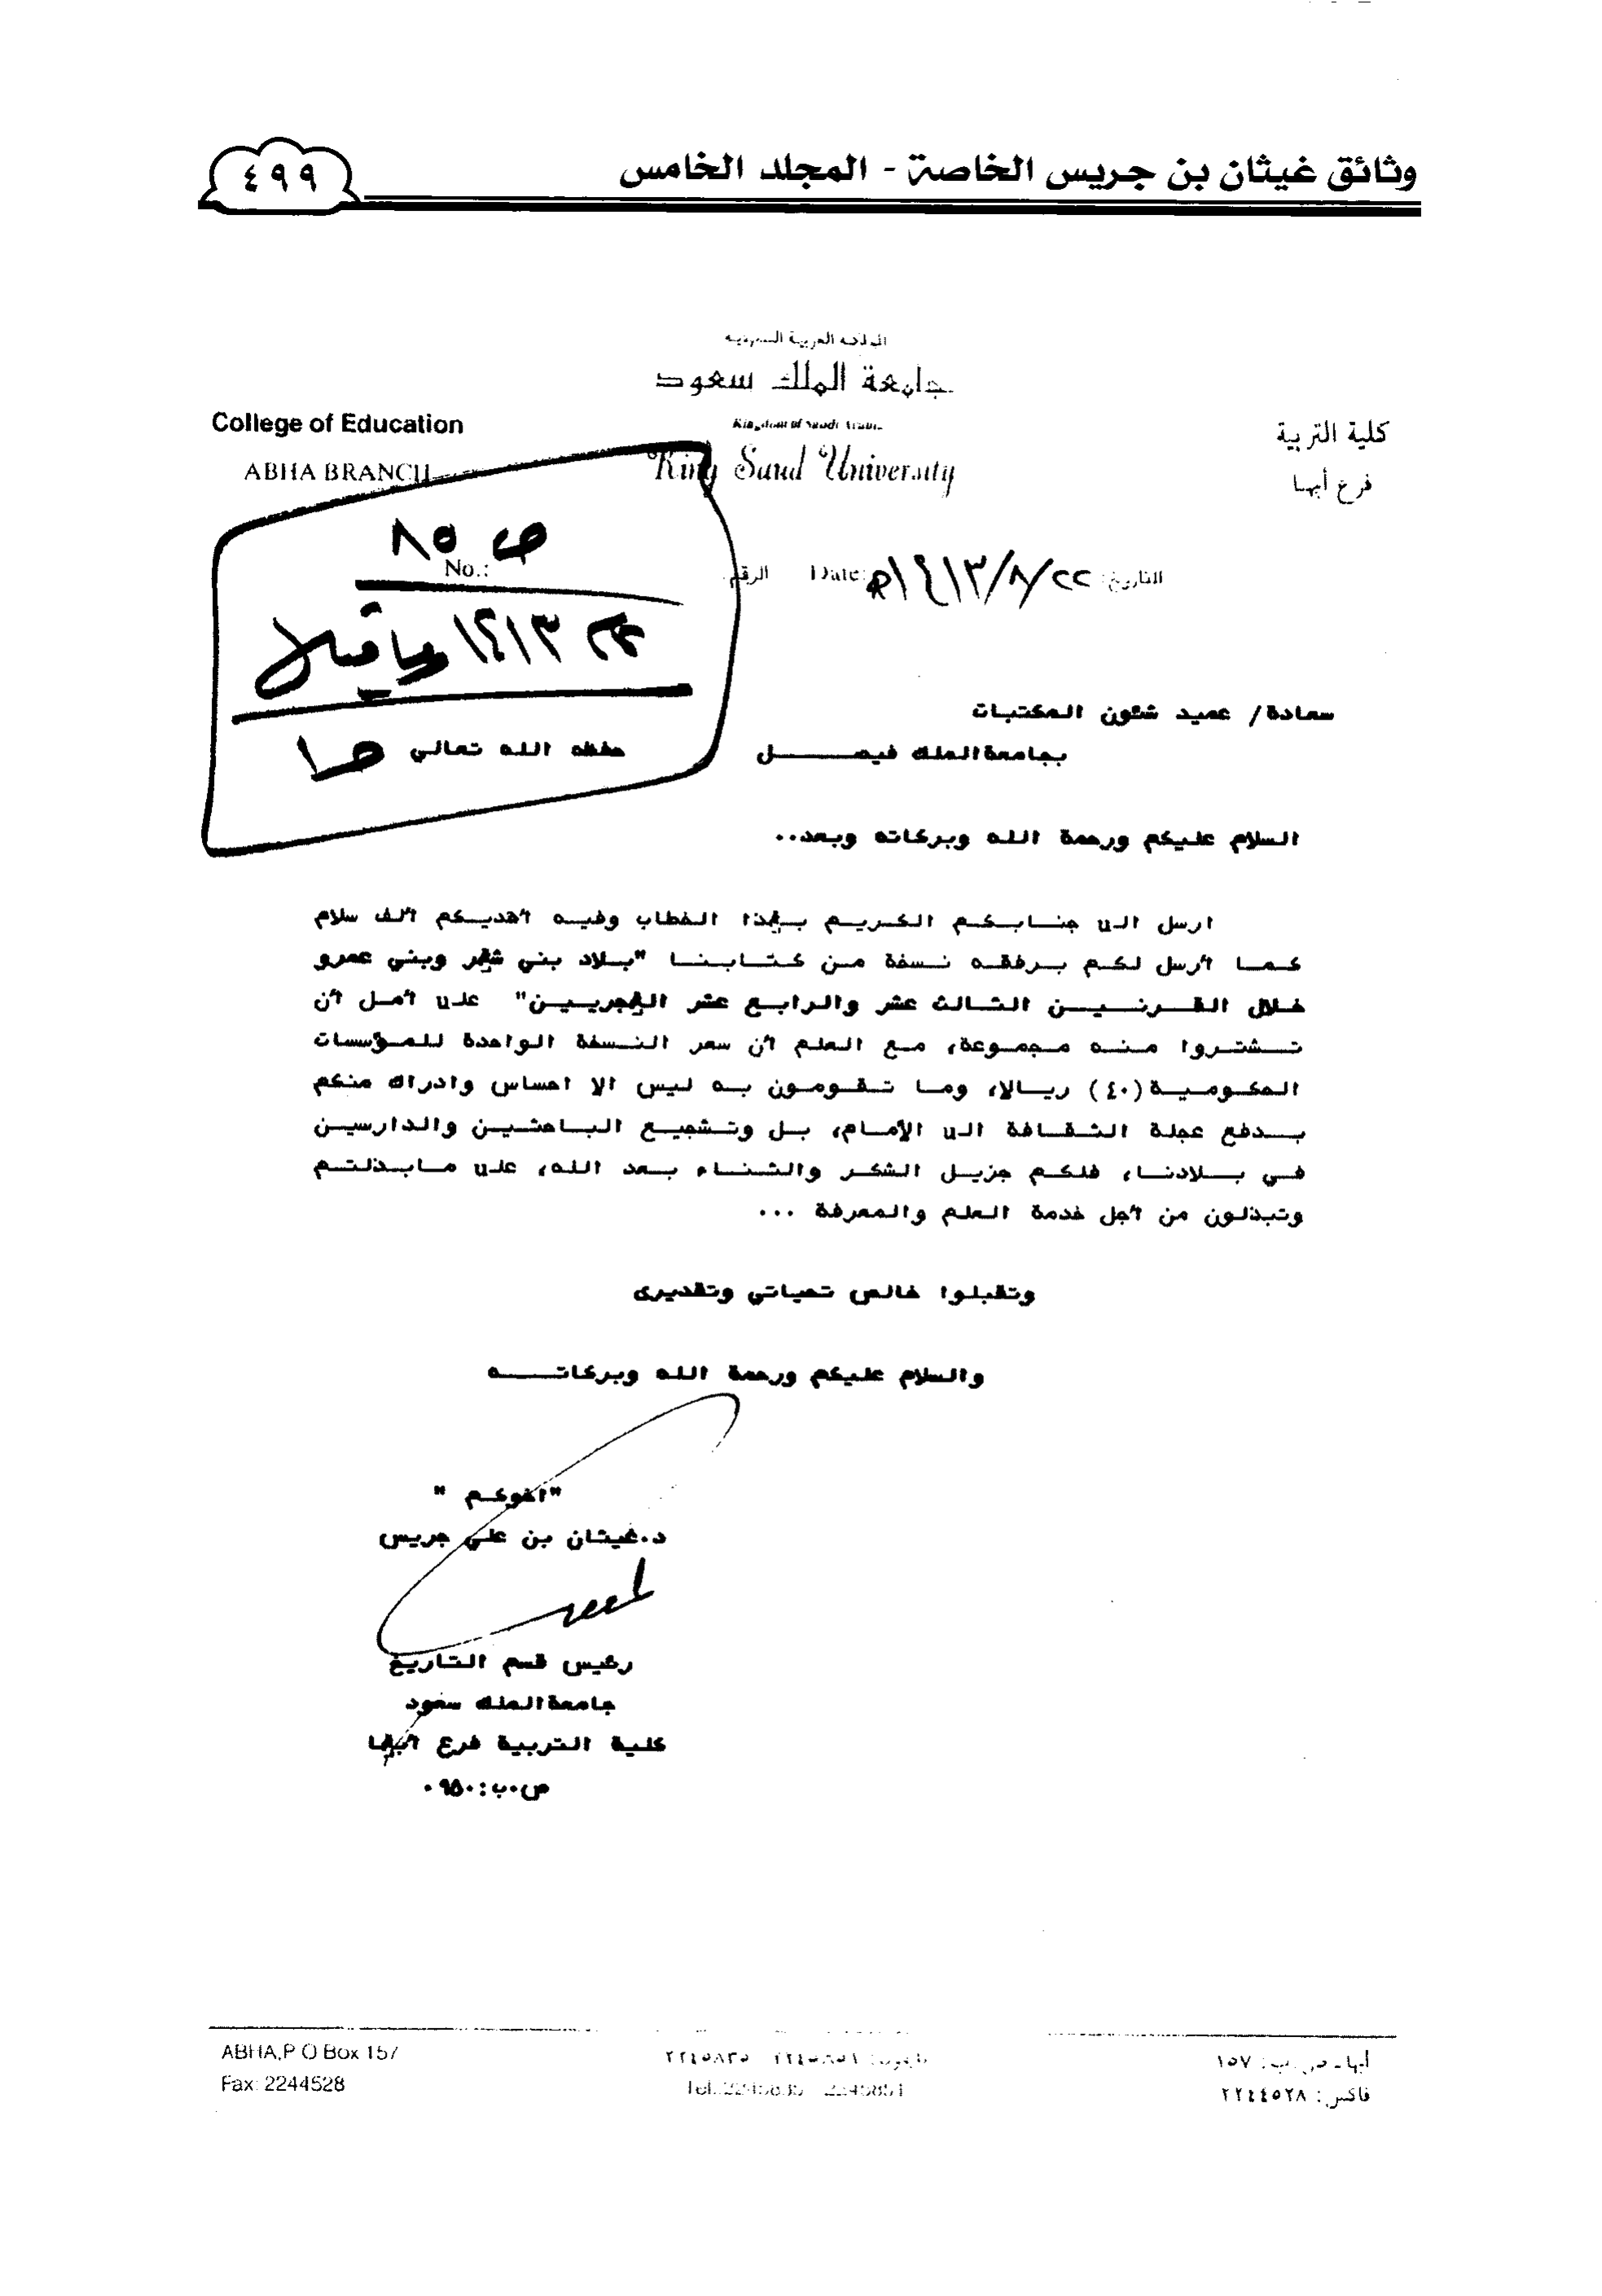 وثائق غيثان بن جريس الخاصة - المجلد الخامس
٤٩٩
المملكة العربية السعودية
جامعة الملك سعود
Kingdom of Saudi Arabia
King Saud University
College of Education
ABHA BRANCH
كلية التربية
فرع أبها
ص ٨٥
No.:
الرقم
Date:
التاريخ: ٢٢/٨/١٤١٣هـ
١٤١٣ وما قبل
ص١
سعادة/ عميد شئون المكتبات
بجامعة الملك فيصــــل حفظه الله تعالي
السلام عليكم ورحمة الله وبركاته وبعد..
ارسل الى جنابكم الكريم بهذا الخطاب وفيه أهديكم ألف سلام
كما أرسل لكم برفقه نسخة من كتابنا "بلاد بني شهر وبني عمرو
خلال القرنين الثالث عشر والرابع عشر الهجريين" على أمل أن
تشتروا منه مجموعة، مع العلم أن سعر النسخة الواحدة للمؤسسات
الحكومية (٤٠) ريالا، وما تقومون به ليس الا احساس وادراك منكم
بدفع عجلة الثقافة الى الأمام، بل وتشجيع الباحثين والدارسين
في بلادنا، فلكم جزيل الشكر والثناء بعد الله، على مابذلتم
وتبذلون من أجل خدمة العلم والمعرفة ...
وتقبلوا خالص تحياتي وتقديرى
والسلام عليكم ورحمة الله وبركاتــــه
"أخوكم "
د.غيثان بن علي جريس
رئيس قسم التاريخ
جامعة الملك سعود
كلية التربية فرع أبها
ص.ب: ٩٥٠٠
ABHA,P O Box 157
Fax: 2244528
أبها ـ ص.ب: ١٥٧
فاكس: ٢٢٤٤٥٢٨